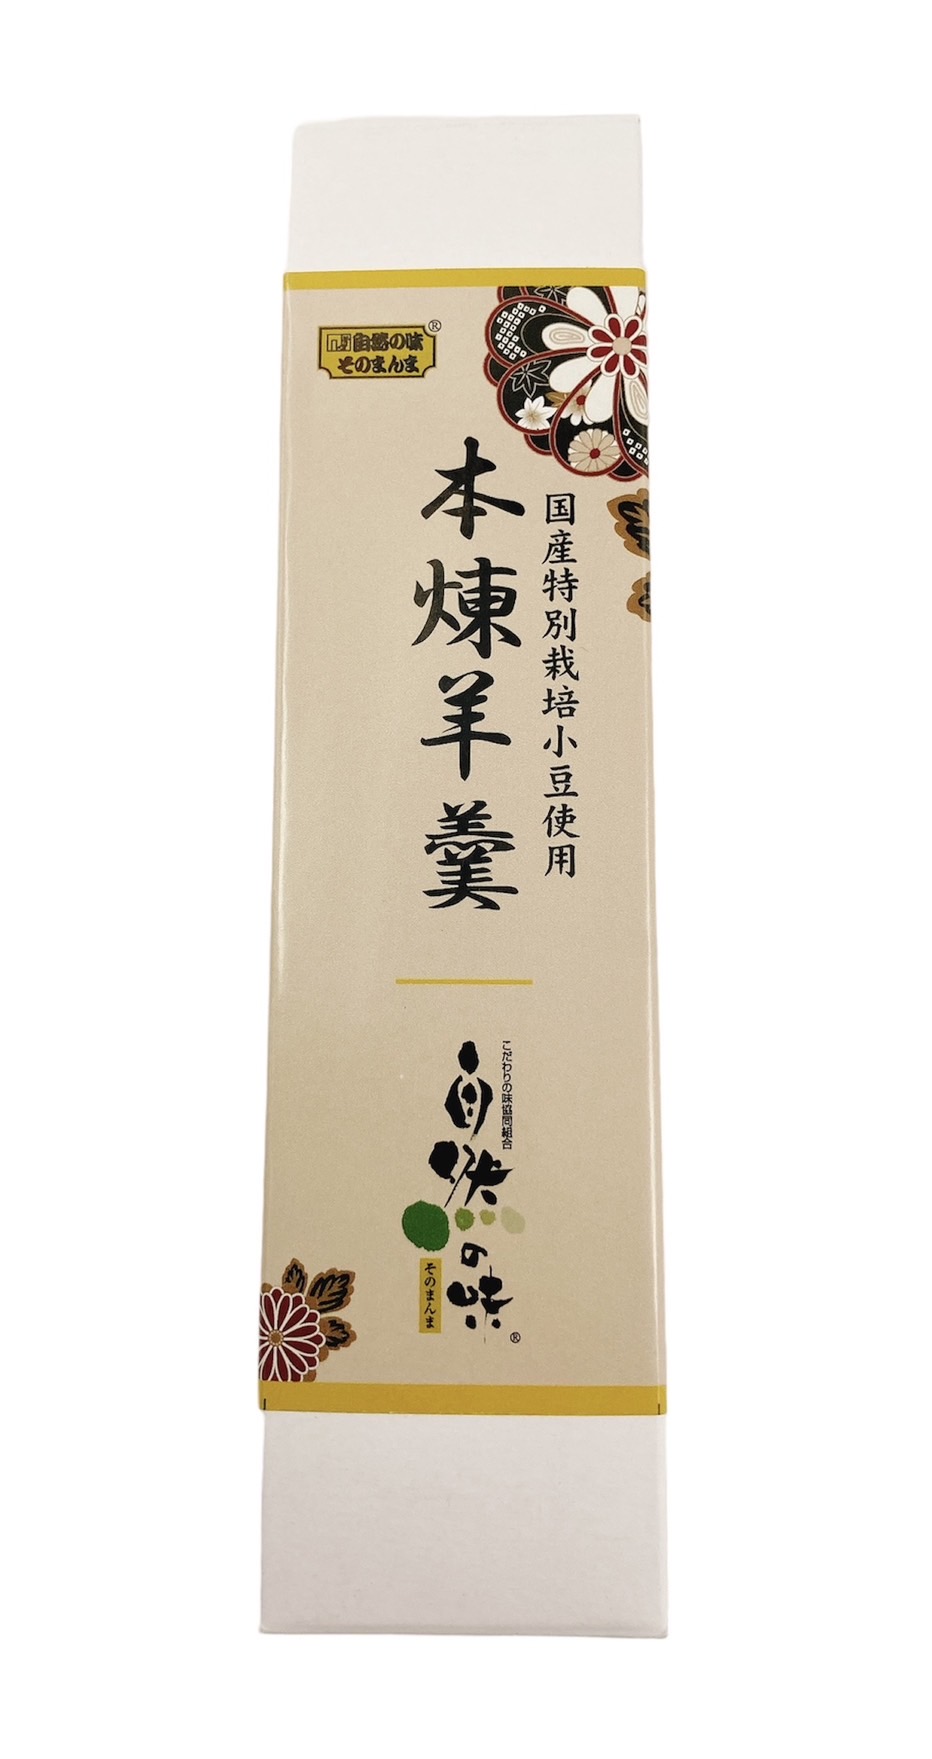 自然の味
そのまんま
®
国産特別栽培小豆使用
本煉羊羹
こだわりの味協同組合
自然の味
そのまんま
®